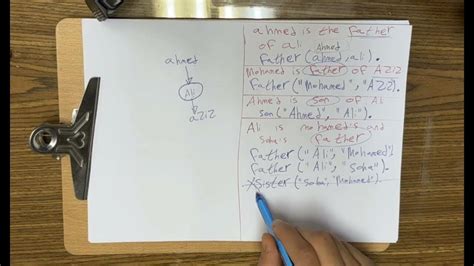 ahmed
Ali
aziz
ahmed is the father
of ali
Ahmed
father (ahmed, ali).
Mohamed is father of Aziz
Father ("Mohamed", "Aziz").
Ahmed is son of Al
son ("Ahmed", "Al").
Ali is mohamed's and
soha's father
father ("Ali", "Mohamed")
father ("Ali", "Soha").
Sister ("Soha", "Mohamed").